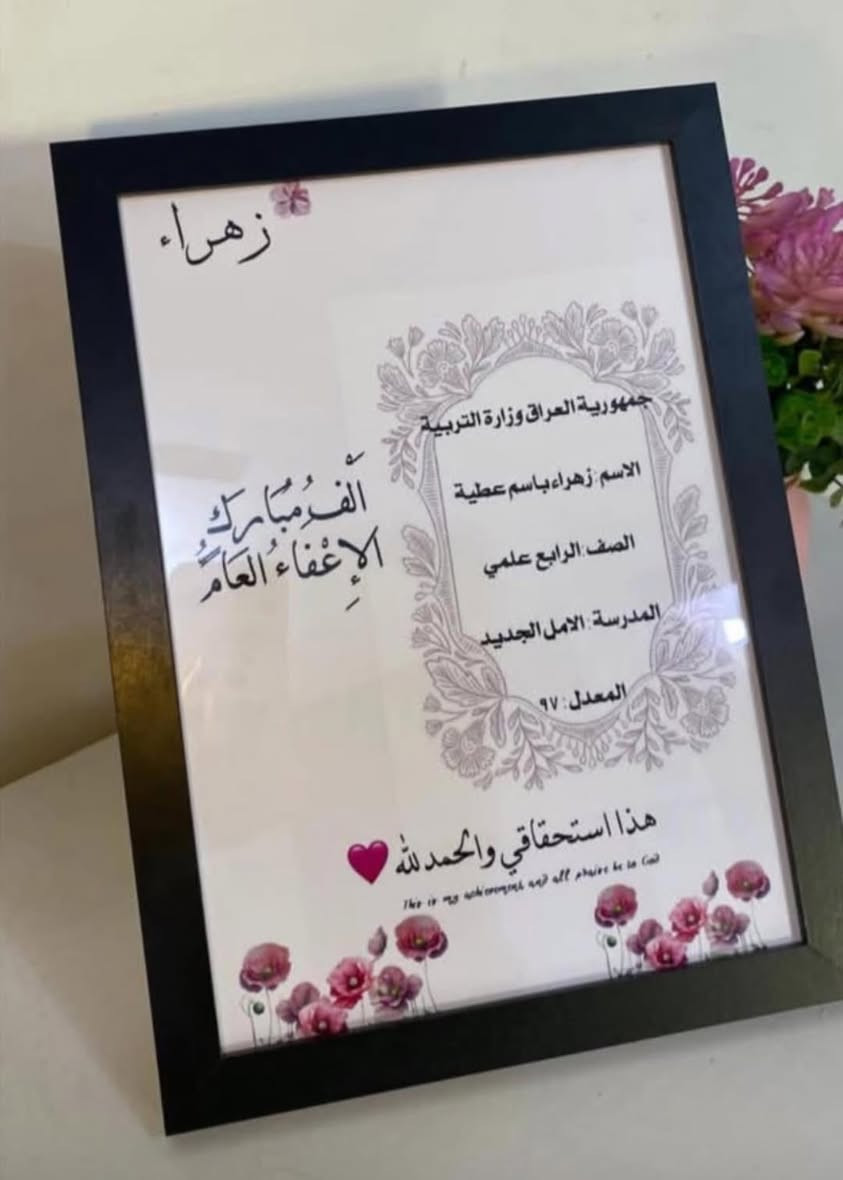 زهراء
جمهورية العراق وزارة التربية
الاسم: زهراء باسم عطية
الصف: الرابع علمي
المدرسة: الامل الجديد
المعدل: ٩٧
أَلْفُ مُبَارَك
الإِعْفَاءُ العَامُّ
هذا استحقاقي والحمد لله
This is my achievement and all praise be to God